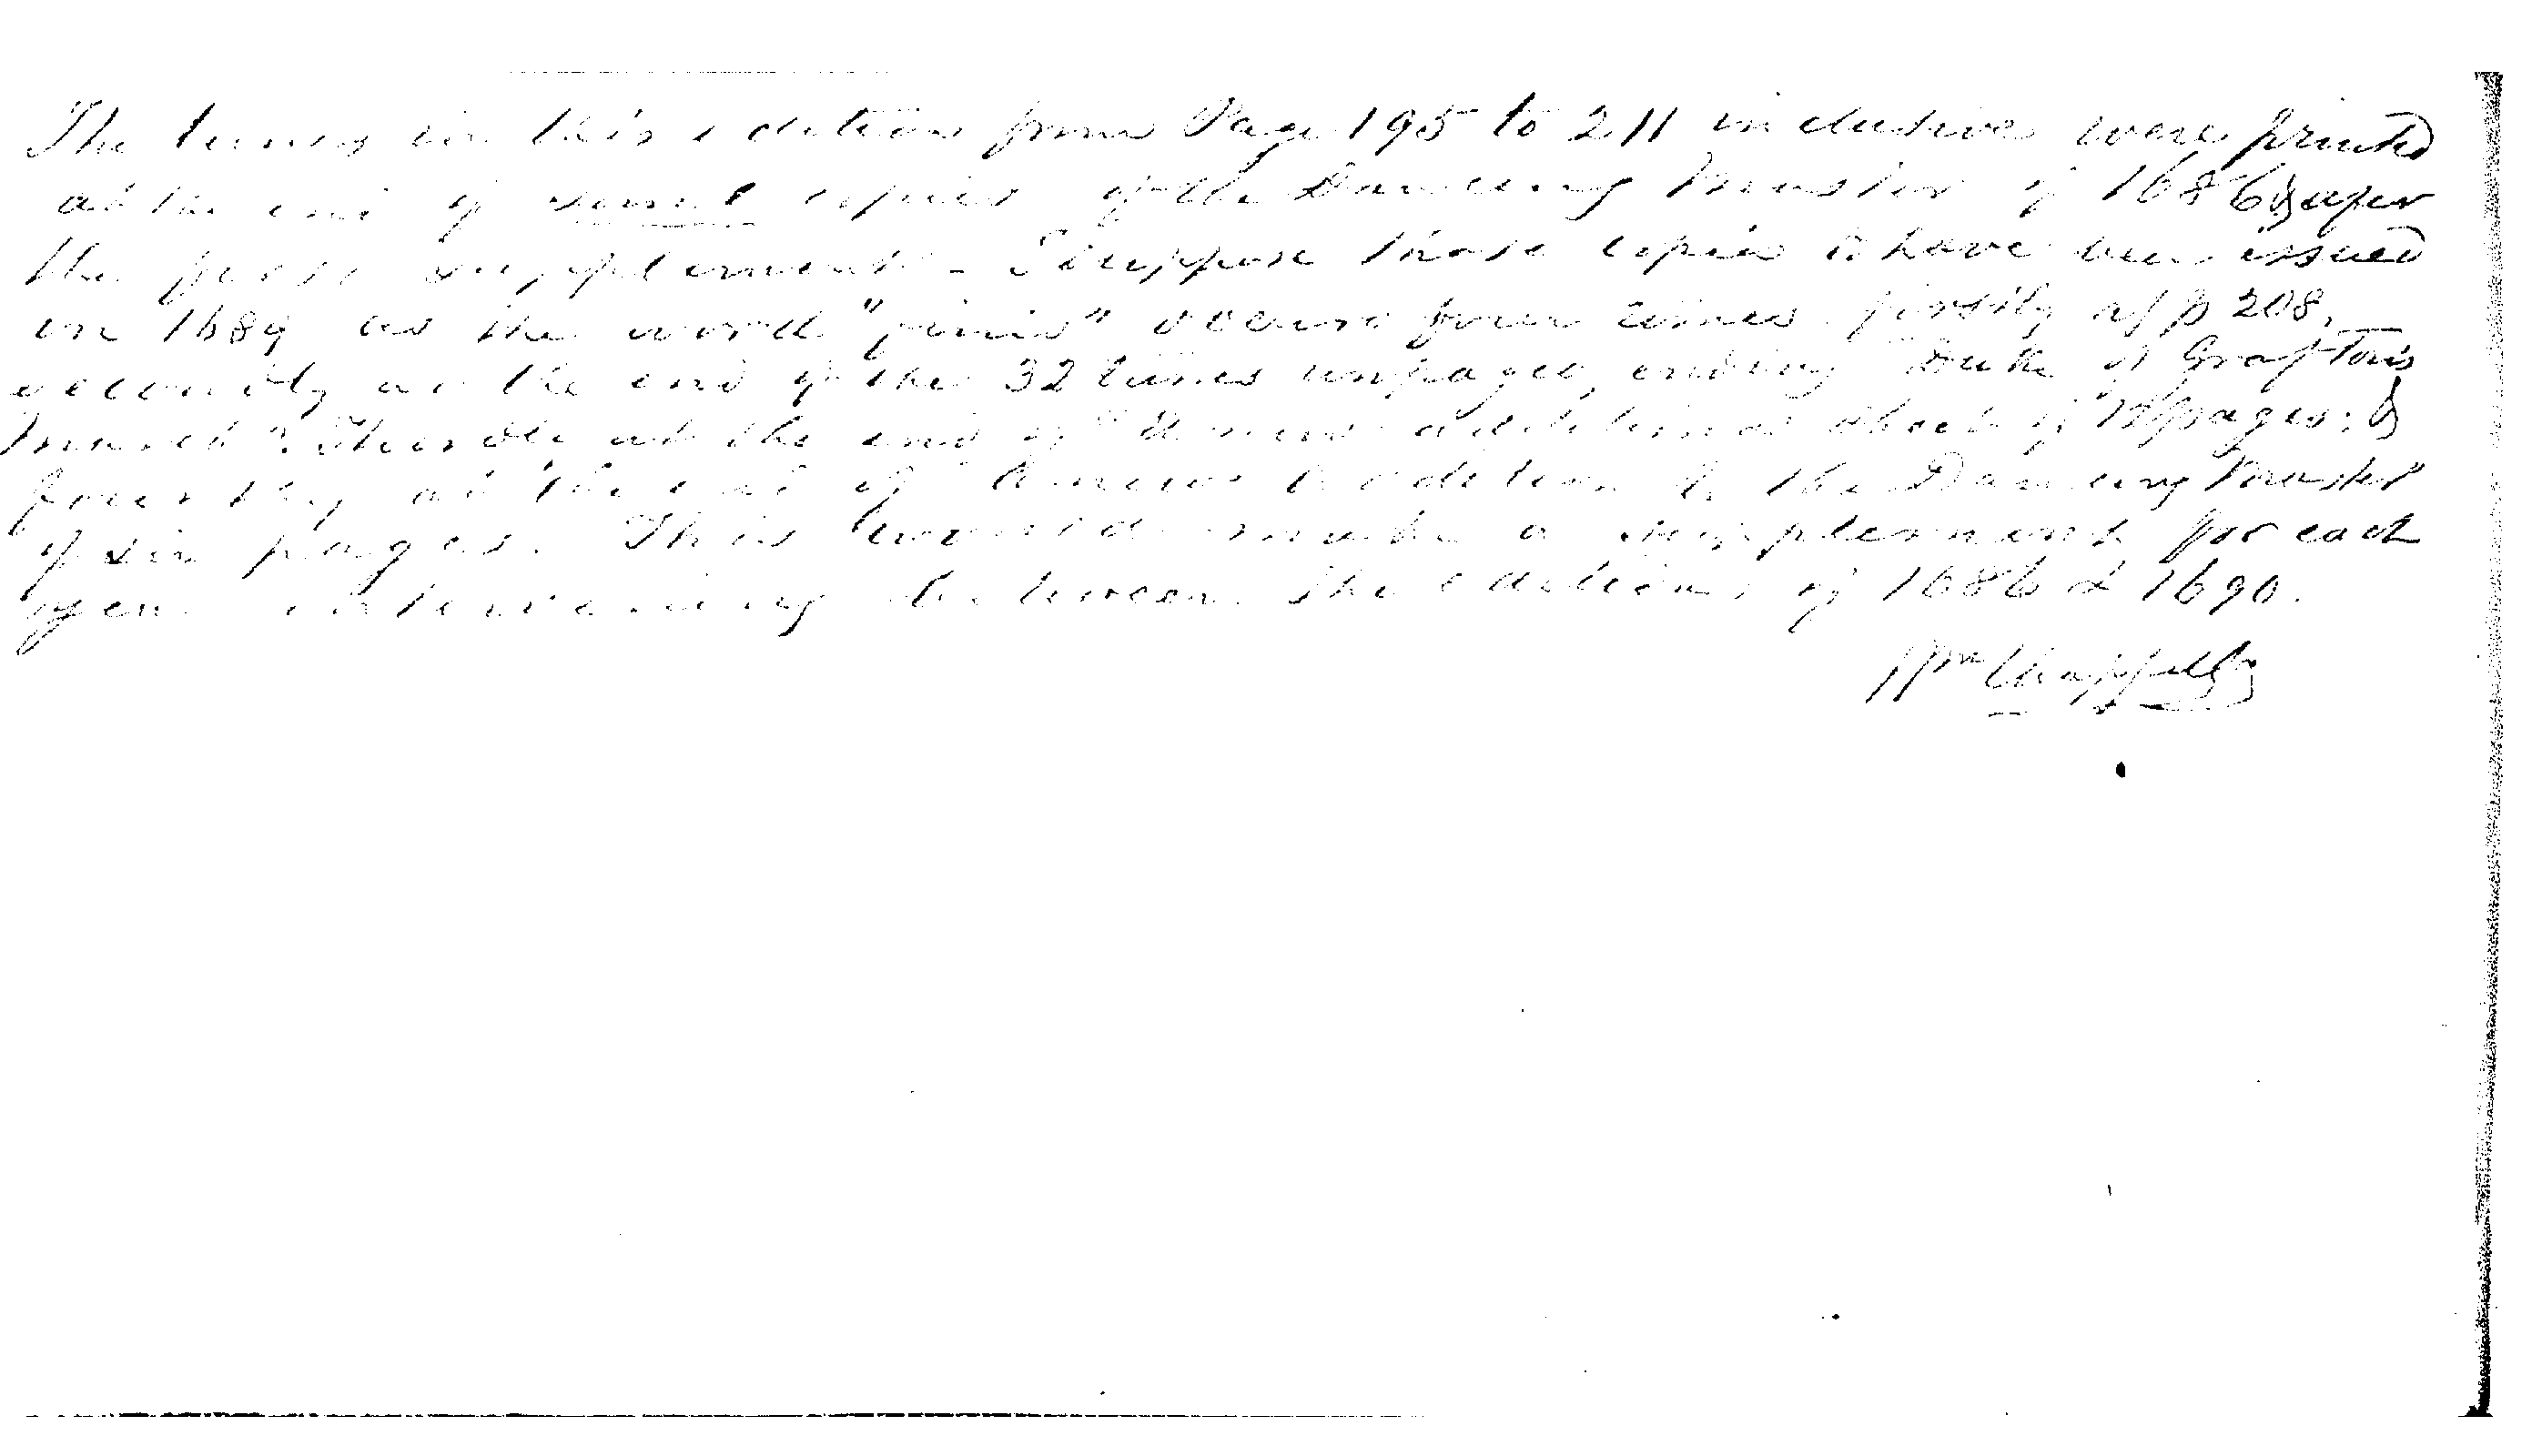 The tunes in this edition from Page 195 to 211 inclusive were printed
at the end of some copies of the Dancing Master of 1686 & after
the first supplement - I suppose those copies to have been issued
in 1689 as the word "finis" occurs four times. firstly at p 208,
secondly at the end of the 32 tunes unpaged, ending "Duke of Grafton's
March". Thirdly at the end of "A new additional sheet" of pages: &
fourthly at the end of "A new addition to the Dancing Master"
of six pages. This would make a supplement for each
year intervening between the editions of 1686 & 1690.
Wm Chappell